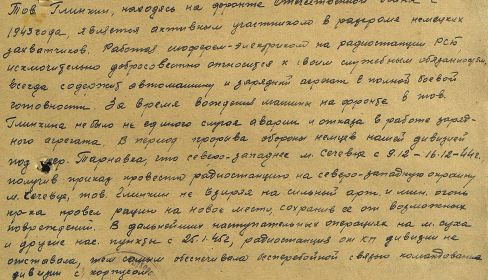 Тов. Глинкин, находясь на фронте Отечественной войны с
1943 года, является активным участником в разгроме немецких
захватчиков. Работая шофером-электриком на радиостанции РСБ
исключительно добросовестно относится к своим служебным обязанностям,
всегда содержит автомашину и зарядный агрегат в полной боевой
готовности. За время вождения машины на фронте в тов.
Глинкина не было не единого случая аварии и отказа в работе заряд-
ного агрегата. В период прорыва обороны немцев нашей дивизией
под дер. Тарнавка, что северо-западнее м. Сечевца с 9.12 - 16.12-44г.
получив приказ провести радиостанцию на северо-западную окраину
м. Сечевце, тов. Глинкин не взирая на сильный арт. и мин. огонь
пр-ка провел рацию на новое место, сохранив ее от возможных
повреждений. В дальнейших наступательных операциях на м. Суха
и другие нас. пункты с 25.1.45г, радиостанция от КП дивизии не
отставала, тем самым обеспечивала бесперебойной связью командование
дивизии с корпусом.